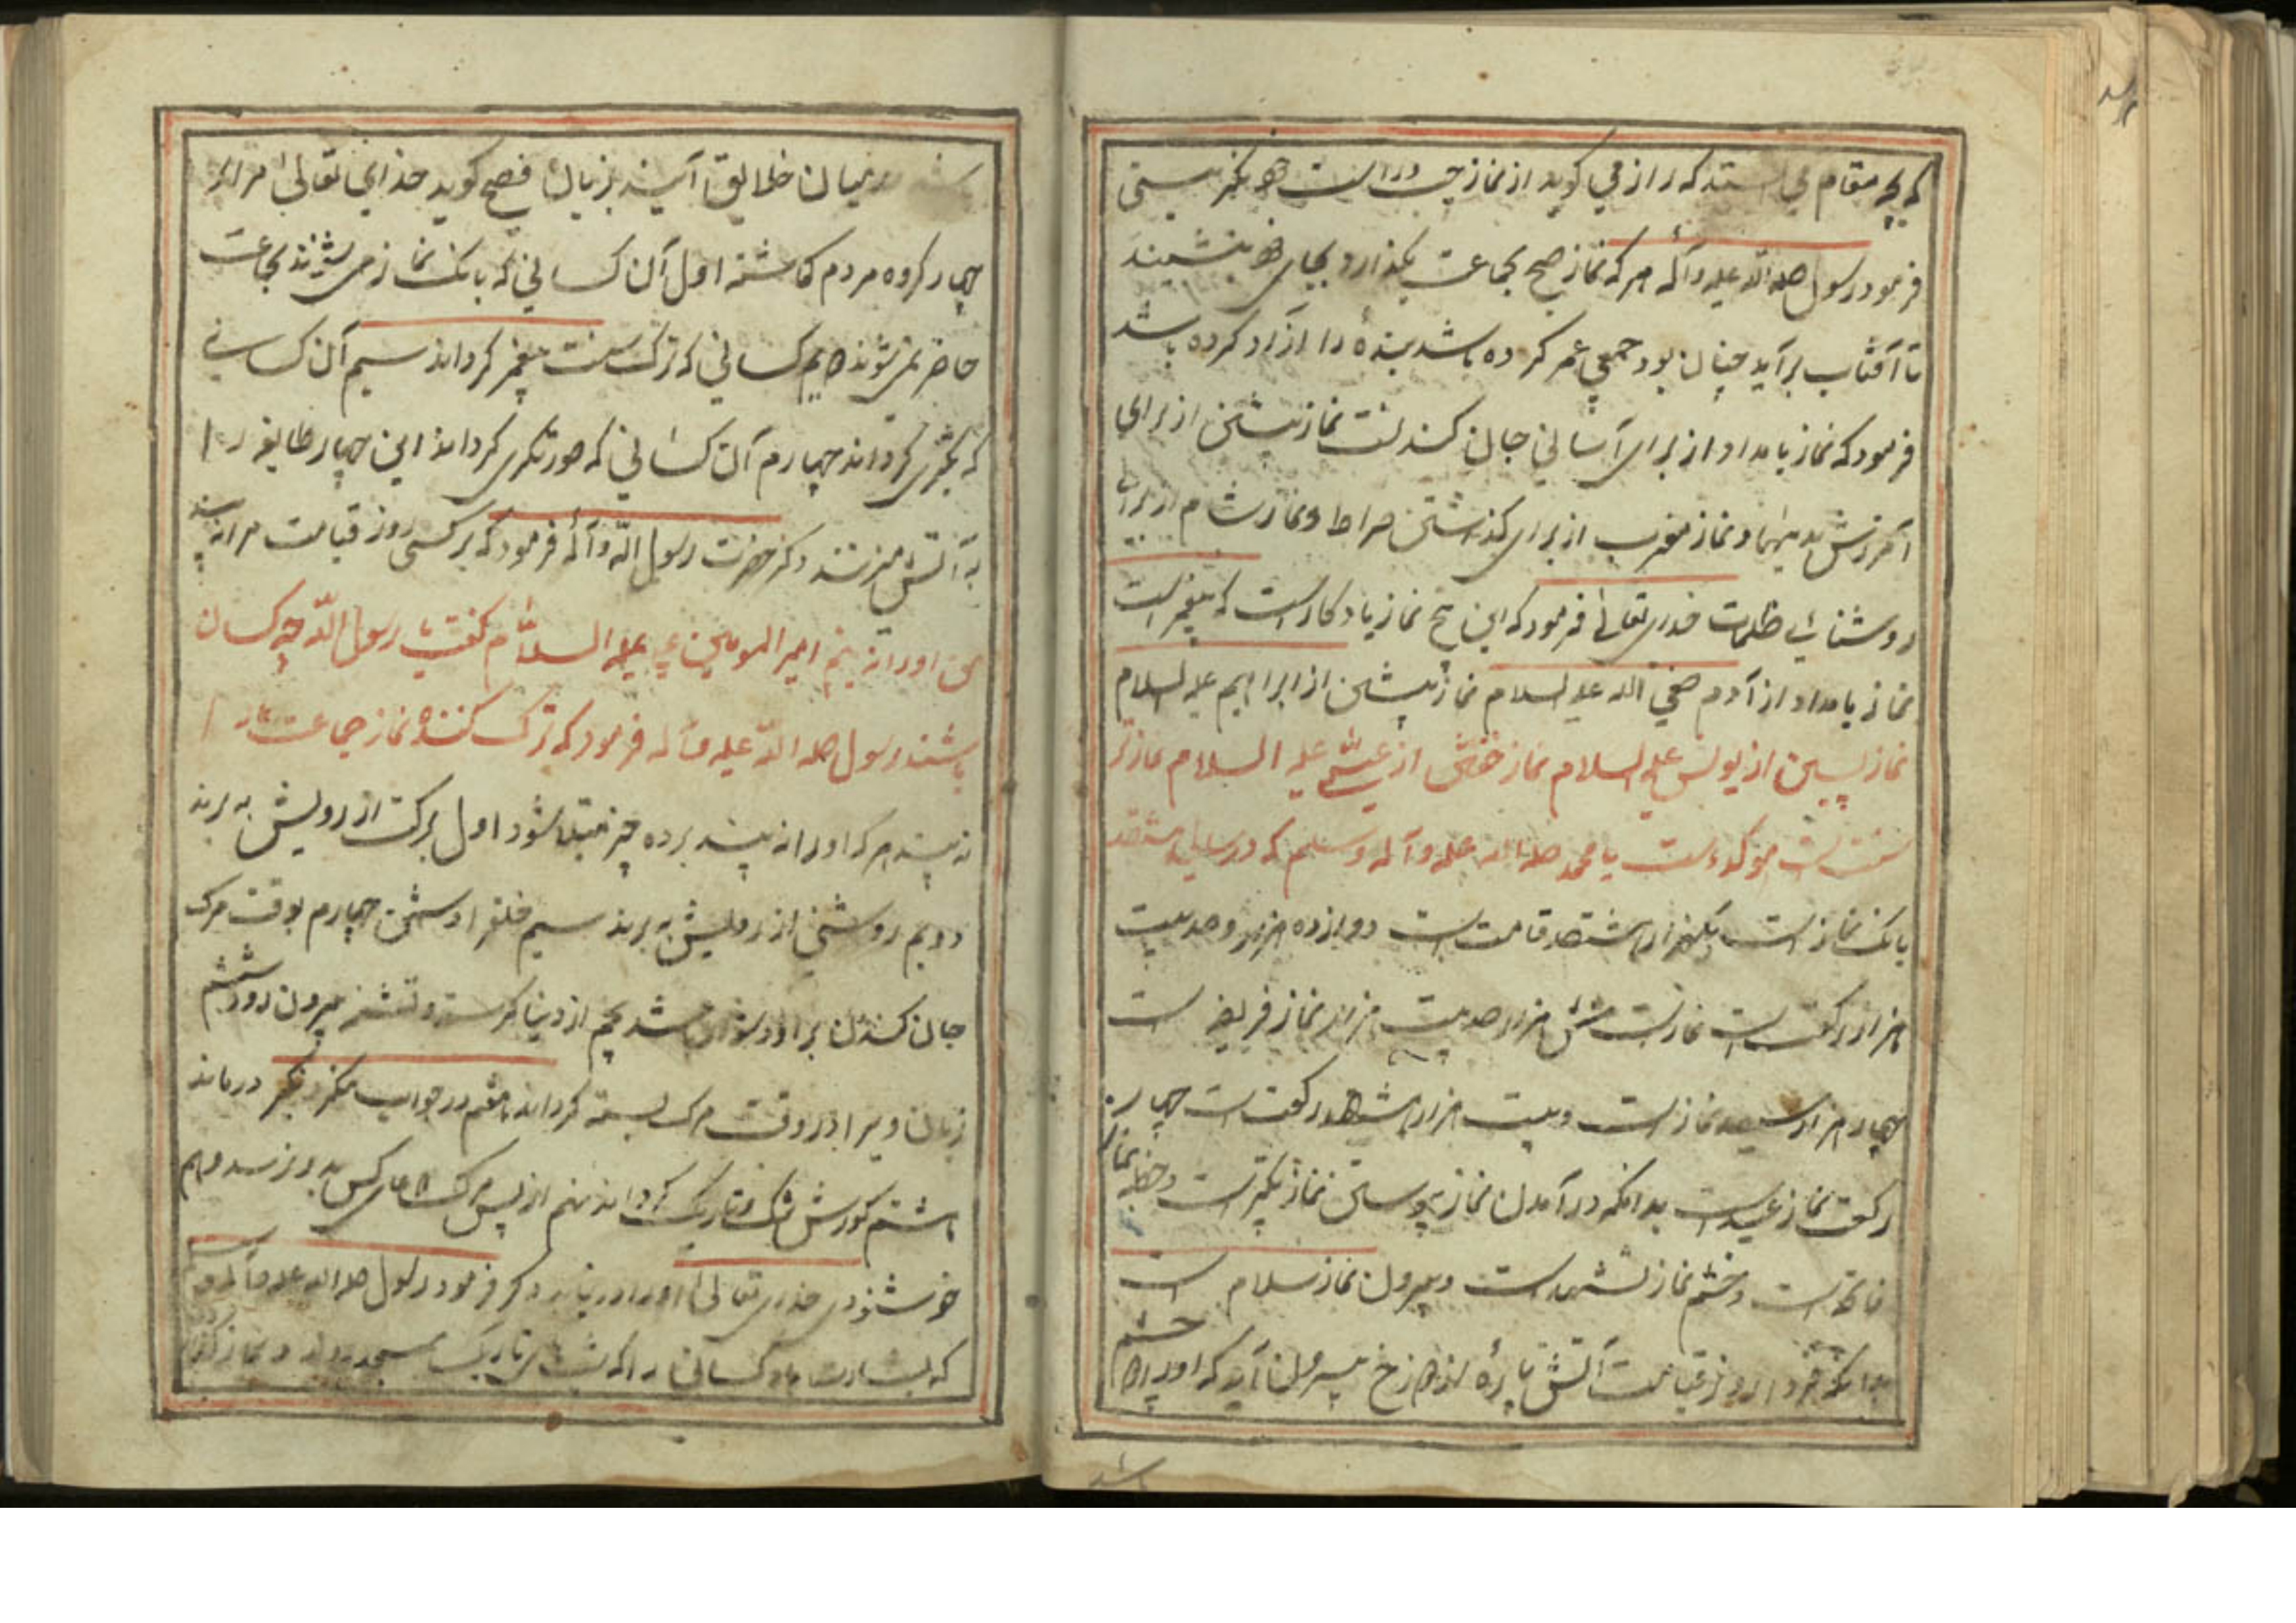 که بچه مقام می ایستد که راز می کوید از نماز چپ و راست خود بکر نیستی
فرمود رسول صلی الله علیه وآله هر که نماز صبح بجماعت بکذارد و بجای خود بنشیند
تا آفتاب برآید چنان بود جمعی عمر کرده باشد بنده را آزاد کرده باشد
فرمود که نماز بامداد از برای آسانی جان کندنست نماز پیشین از برای
آمرزش بدیهها و نماز مغرب از برای کذشتن صراط و نماز شام از برای
روشنائی ظلمات خدای تعالی فرمود که این پنج نماز یادکار است که پیغمبر است
نماز بامداد از آدم صفی الله علیه السلام نماز پیشین از ابراهیم علیه السلام
نماز پسین از یونس علیه السلام نماز خفتن از عیسی علیه السلام نماز تر
سنت موکده است یا محمد صلی الله علیه وآله وسلم که در سالی هشتصد
بانک نماز است یکهزار هشتصد قامت است دوازده هزار و صد بیست
هزار رکعت است نماز شش هزار صد بیت هزار نماز فریضه است
چهار هزار سیصد نماز است و بیست هزار هشتصد رکعت است چهار
رکعت نماز عید است بدانکه در آمدن نماز پیوستن نماز تکبیر است و جمله نماز
فاتحه است و ختم نماز تشهد است و بیرون نماز سلام است
بدانکه فردا روز قیامت آتش پاره از دوزخ بیرون آید که او را چشم
باشد
باشد در میان خلایق آیند بزبان فصیح کوید خدای تعالی مرا برا
چهار کروه مردم کماشته اول آن کسانی که بانک نماز می شنوند بجماعت
حاضر نمی شوند دویم کسانی که ترک سنت پیغمبر کرداند سیم آن کسانی
که کرداند چهارم آن کسانی که صورتکری کرداند این چهار طایفه را
به آتش میزنند دکر حضرت رسول الله وآله فرمود که هر کسی روز قیامت مرا نه بیند
من او را نه بینم امیر المومنین علی علیه السلام کفت یا رسول الله چه کسان
باشند رسول صلی الله علیه وآله فرمود که ترک کننده نماز جماعت مرا
نه بیند هر که او را نه بیند برده چیز مبتلا شود اول برکت از رویش به برند
دویم روشنی از رویش به برند سیم خلق او دشمن چهارم بوقت مرک
جان کندن بر او دشوار باشد پنجم از دنیا کرسنه و تشنه بیرون رود ششم
زبان ویرا در وقت مرک بسته کرداند هفتم در جواب منکر نکیر درماند
هشتم کورش تنک و تاریک کرداند نهم از پس مرک دعای کس بدو نرسد دهم
خوشنودی خدای تعالی او را در نیابد دکر فرمود رسول صلی الله علیه وآله
که بشارت باد کسانی را که شبهای تاریک بمسجد روند و نماز کذا